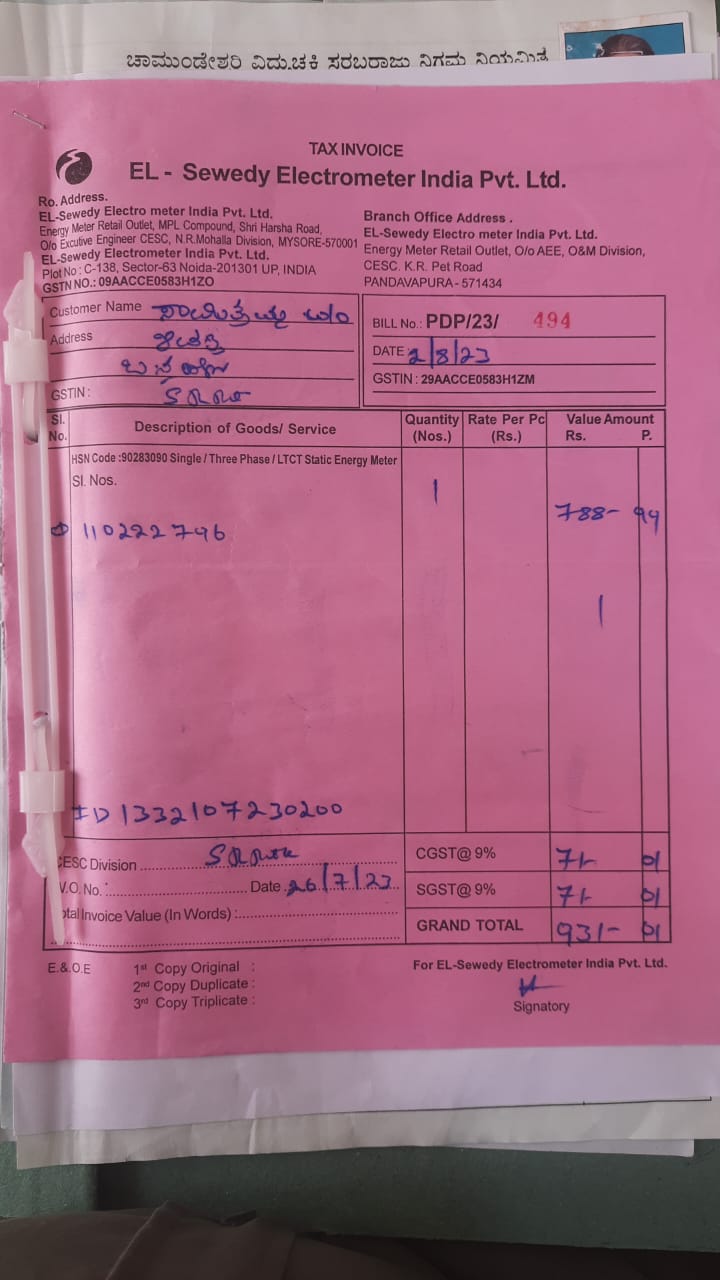 ಚಾಮುಂಡೇಶ್ವರಿ ವಿದ್ಯುಚ್ಛಕ್ತಿ ಸರಬರಾಜು ನಿಗಮ ನಿಯಮಿತ
TAX INVOICE
EL - Sewedy Electrometer India Pvt. Ltd.
Ro. Address.
EL-Sewedy Electro meter India Pvt. Ltd.
Energy Meter Retail Outlet, MPL Compound, Shri Harsha Road,
O/o Excutive Engineer CESC, N.R.Mohalla Division, MYSORE-570001
EL-Sewedy Electrometer India Pvt. Ltd.
Plot No : C-138, Sector-63 Noida-201301 UP, INDIA
GSTN NO.: 09AACCE0583H1ZO
Branch Office Address .
EL-Sewedy Electro meter India Pvt. Ltd.
Energy Meter Retail Outlet, O/o AEE, O&M Division,
CESC. K.R. Pet Road
PANDAVAPURA - 571434
Customer Name
Address
GSTIN :
BILL No.: PDP/23/ 494
DATE 2/8/23
GSTIN : 29AACCE0583H1ZM
Sl. No. Description of Goods/ Service Quantity (Nos.) Rate Per Pc (Rs.) Value Amount Rs. P.
HSN Code :90283090 Single / Three Phase / LTCT Static Energy Meter
Sl. Nos. 1
788- 99
110222796
1
ID 1332107230200
CESC Division
V.O. No. Date 26/7/23
Total Invoice Value (In Words) :
CGST@ 9% 71- 01
SGST@ 9% 71- 01
GRAND TOTAL 931- 01
E.&.O.E
1st Copy Original :
2nd Copy Duplicate :
3rd Copy Triplicate :
For EL-Sewedy Electrometer India Pvt. Ltd.
Signatory